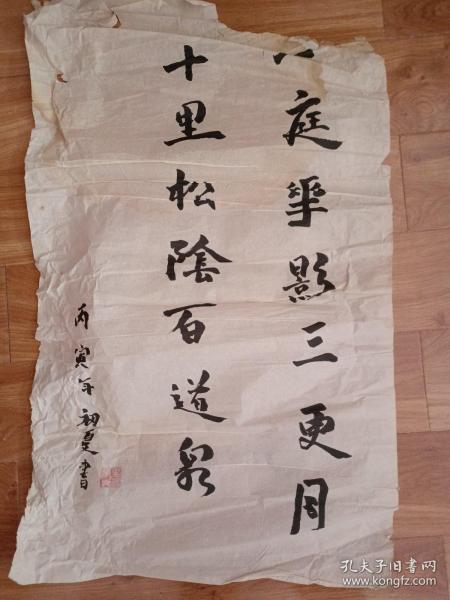 庭華影三更月
十里松陰百道泉
丙寅年初夏書
孔夫子旧书网
www.kongfz.com